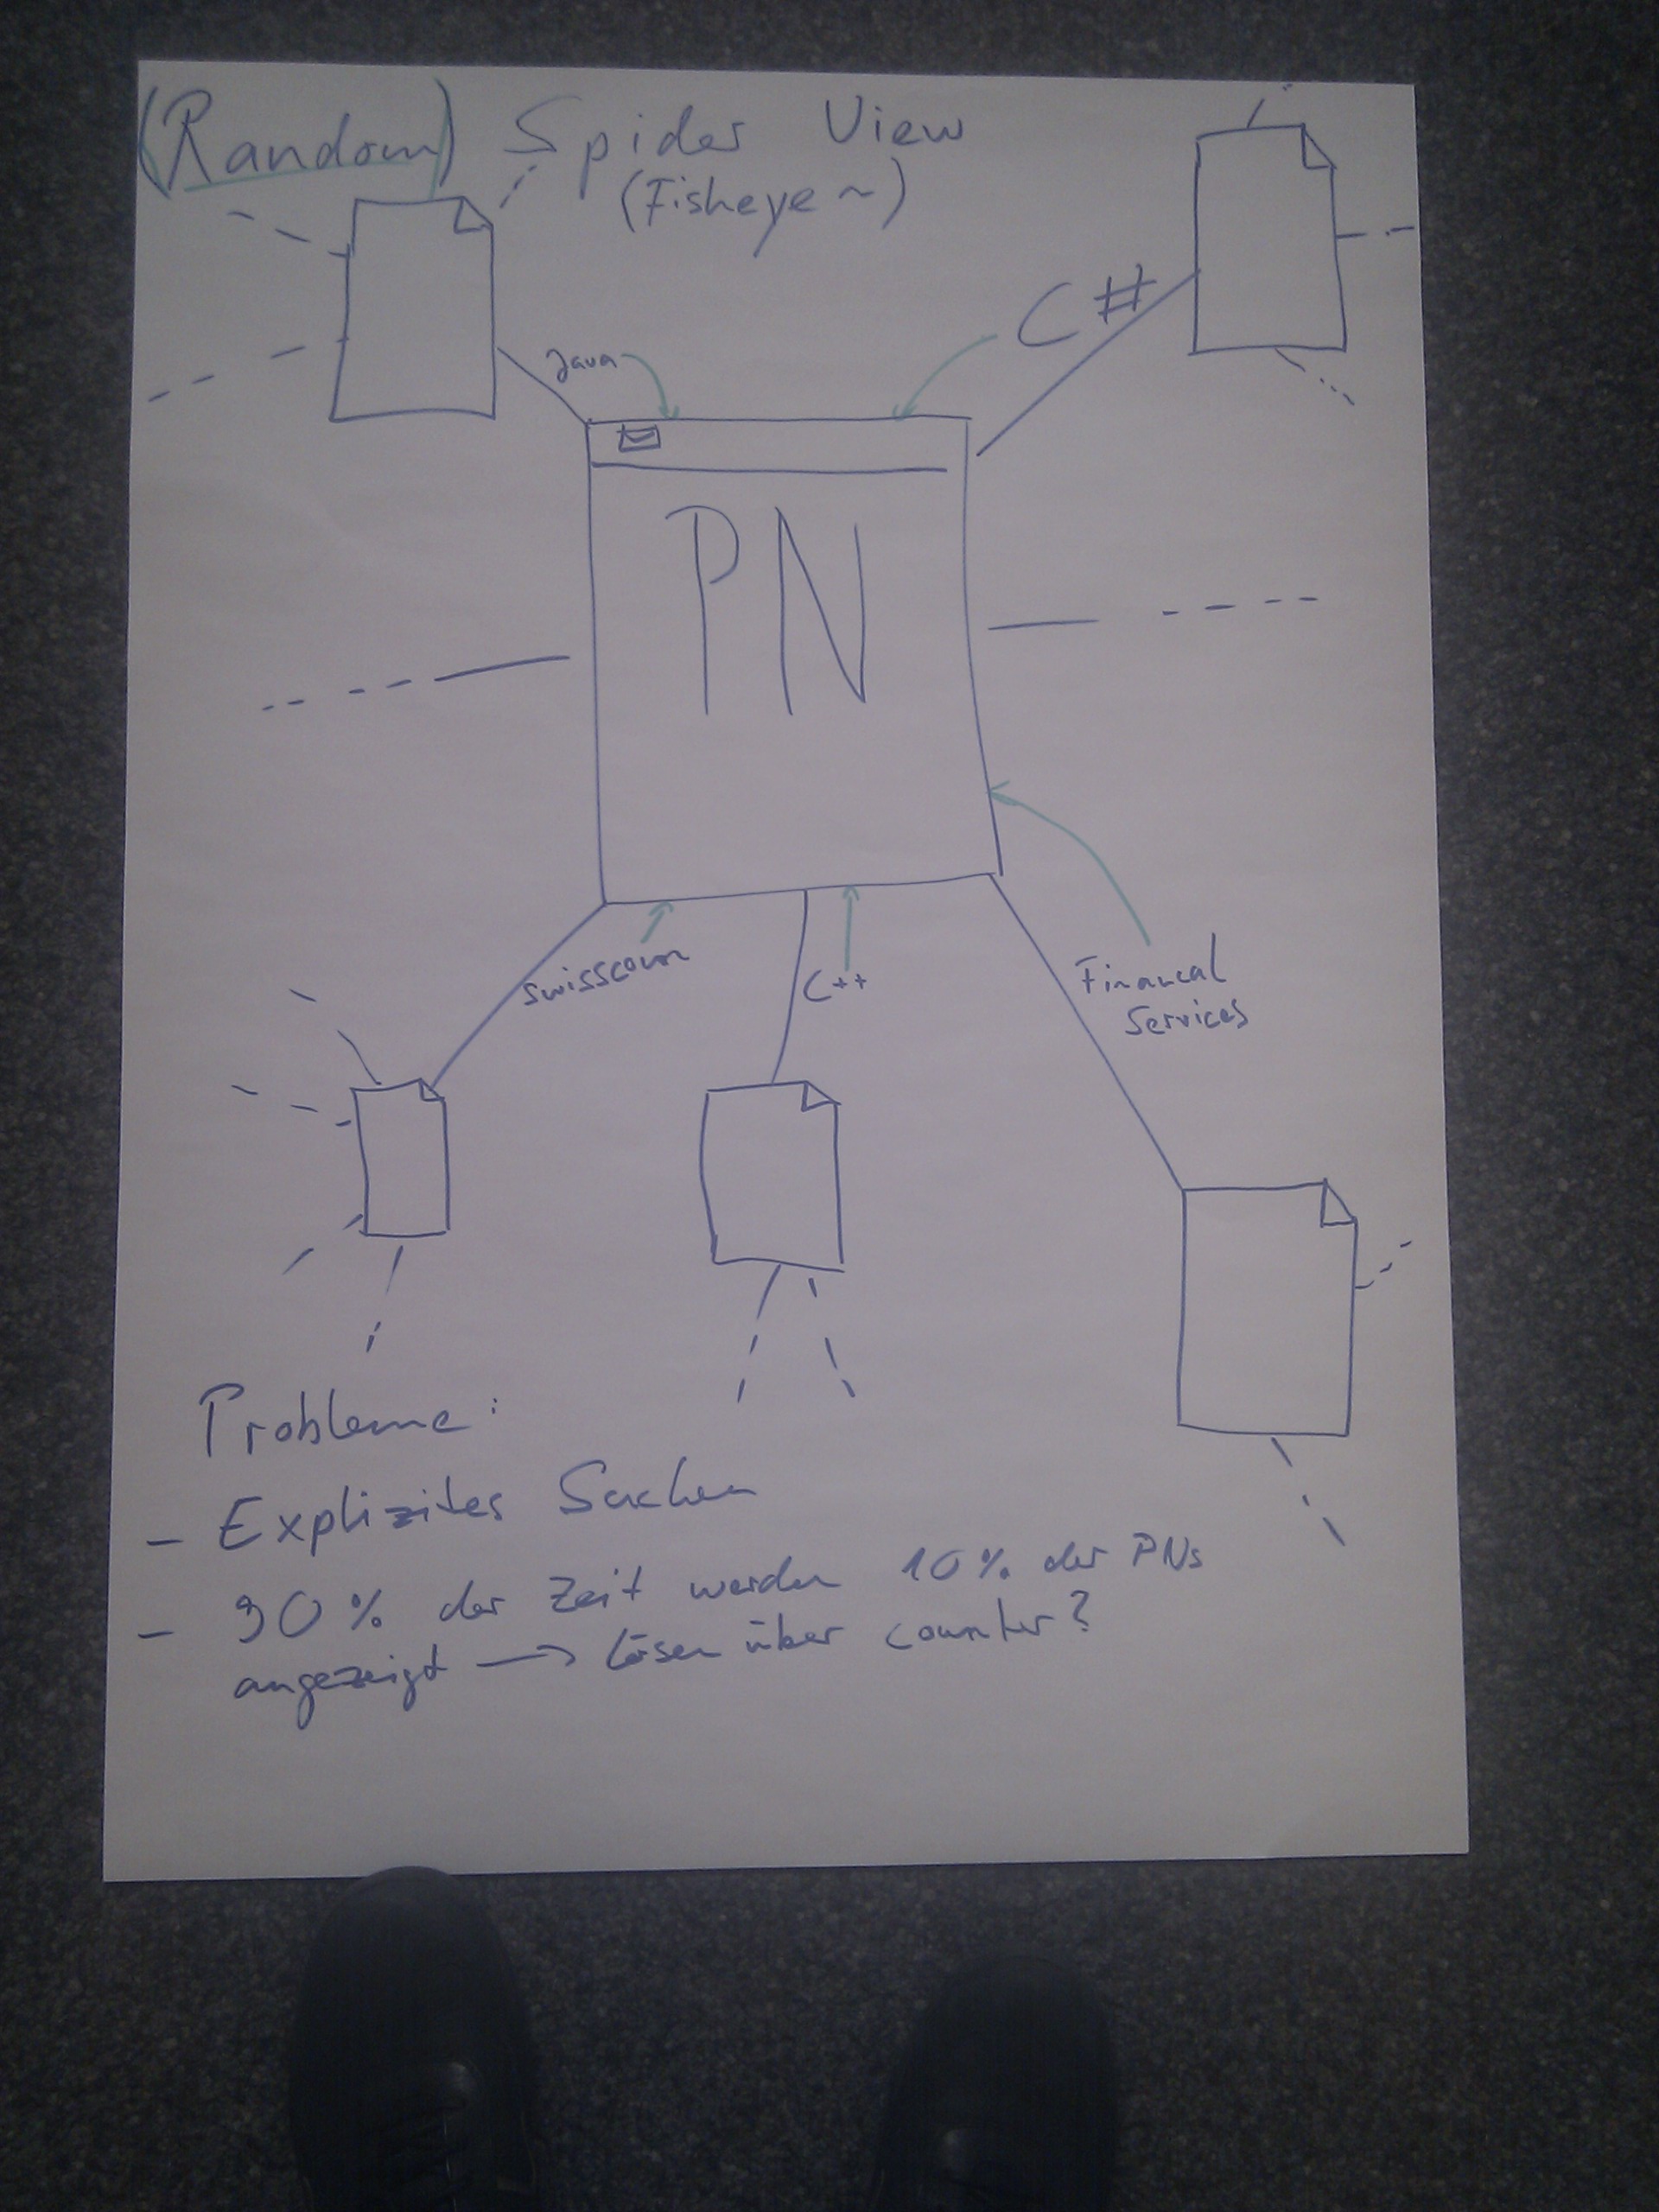 (Random) Spider View
(Fisheye ~)
C#
Java
PN
Swisscom
C++
Financal
Services
Probleme:
- Explizites Suchen
- 90% der Zeit werden 10% der PNs
angezeigt → lösen über counter?